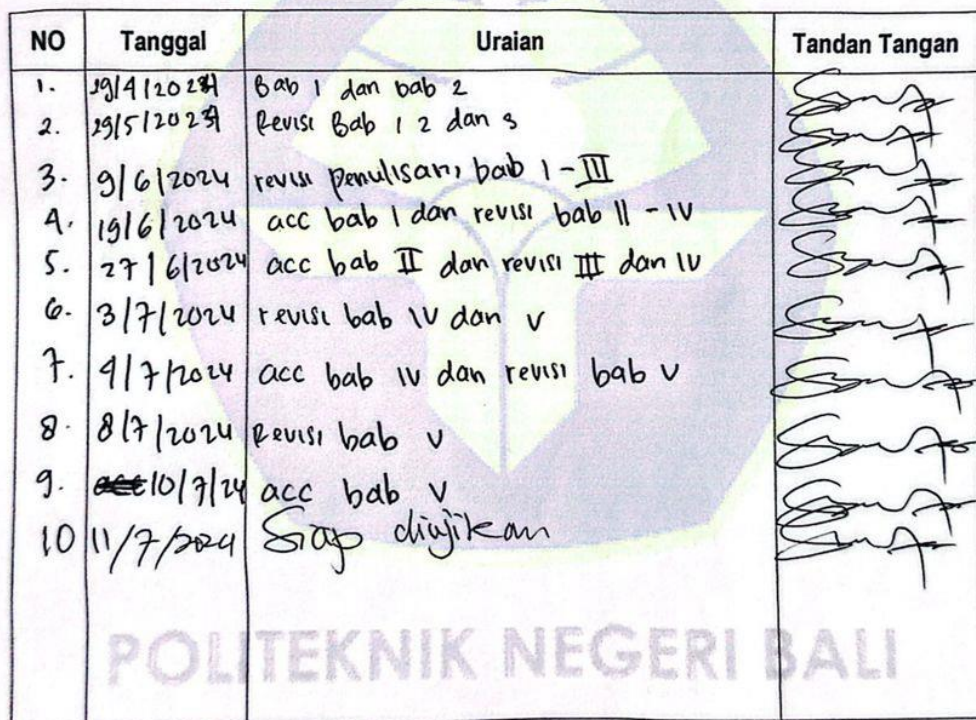 NO Tanggal Uraian Tandan Tangan
1. 29/4/2024 Bab 1 dan bab 2
2. 29/5/2024 Revisi Bab 1 2 dan 3
3. 9/6/2024 revisi penulisan, bab 1 - III
4. 19/6/2024 acc bab I dan revisi bab II - IV
5. 27/6/2024 acc bab II dan revisi III dan IV
6. 3/7/2024 revisi bab IV dan V
7. 4/7/2024 acc bab IV dan revisi bab V
8. 8/7/2024 Revisi bab V
9. 10/7/24 acc bab V
10 11/7/2024 Siap diujikan
POLITEKNIK NEGERI BALI